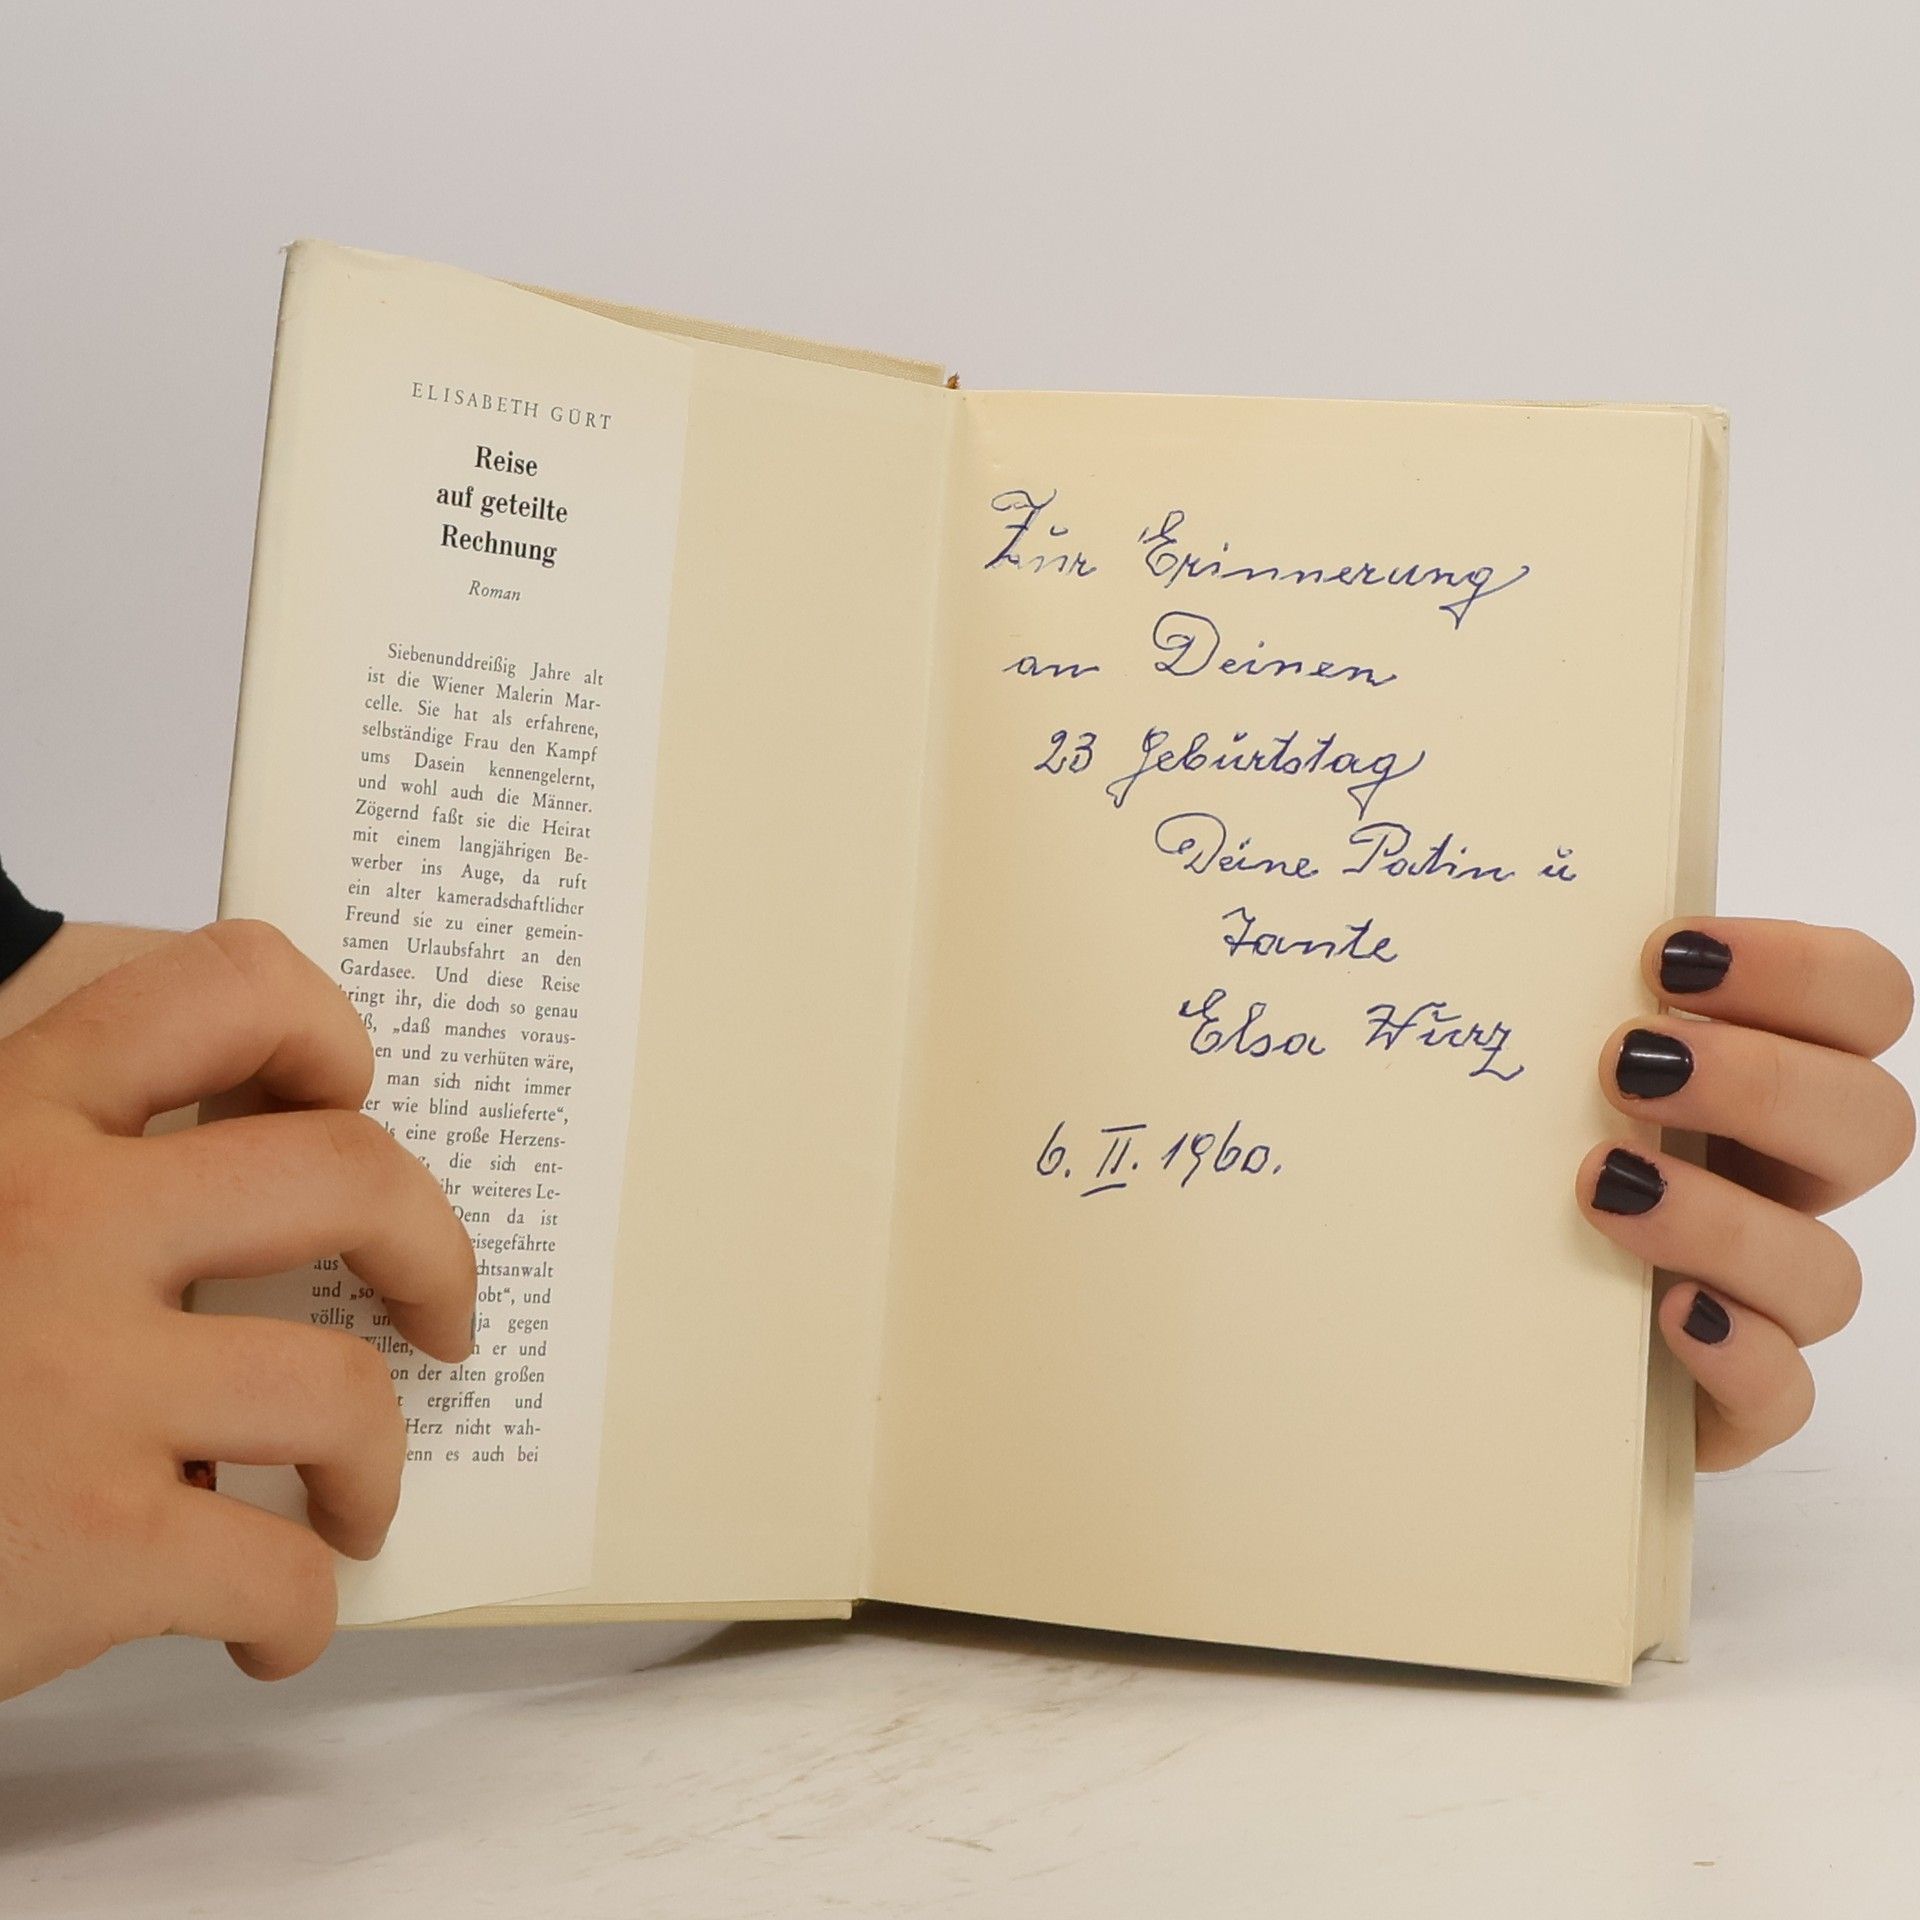 ELISABETH GÜRT
Reise
auf geteilte
Rechnung
Roman
Siebenunddreißig Jahre alt
ist die Wiener Malerin Mar-
celle. Sie hat als erfahrene,
selbständige Frau den Kampf
ums Dasein kennengelernt,
und wohl auch die Männer.
Zögernd faßt sie die Heirat
mit einem langjährigen Be-
werber ins Auge, da ruft
ein alter kameradschaftlicher
Freund sie zu einer gemein-
samen Urlaubsfahrt an den
Gardasee. Und diese Reise
bringt ihr, die doch so genau
„daß manches voraus-
und zu verhüten wäre,
man sich nicht immer
wie blind auslieferte“,
eine große Herzens-
die sich ent-
ihr weiteres Le-
Denn da ist
aus
und „so und
völlig ja gegen
Willen, er und
der alten großen
ergriffen und
Herz nicht wah-
es auch bei
Zur Erinnerung
an Deinen
23 Geburtstag
Deine Patin u
Tante
Elsa Wurz
6. II. 1960.